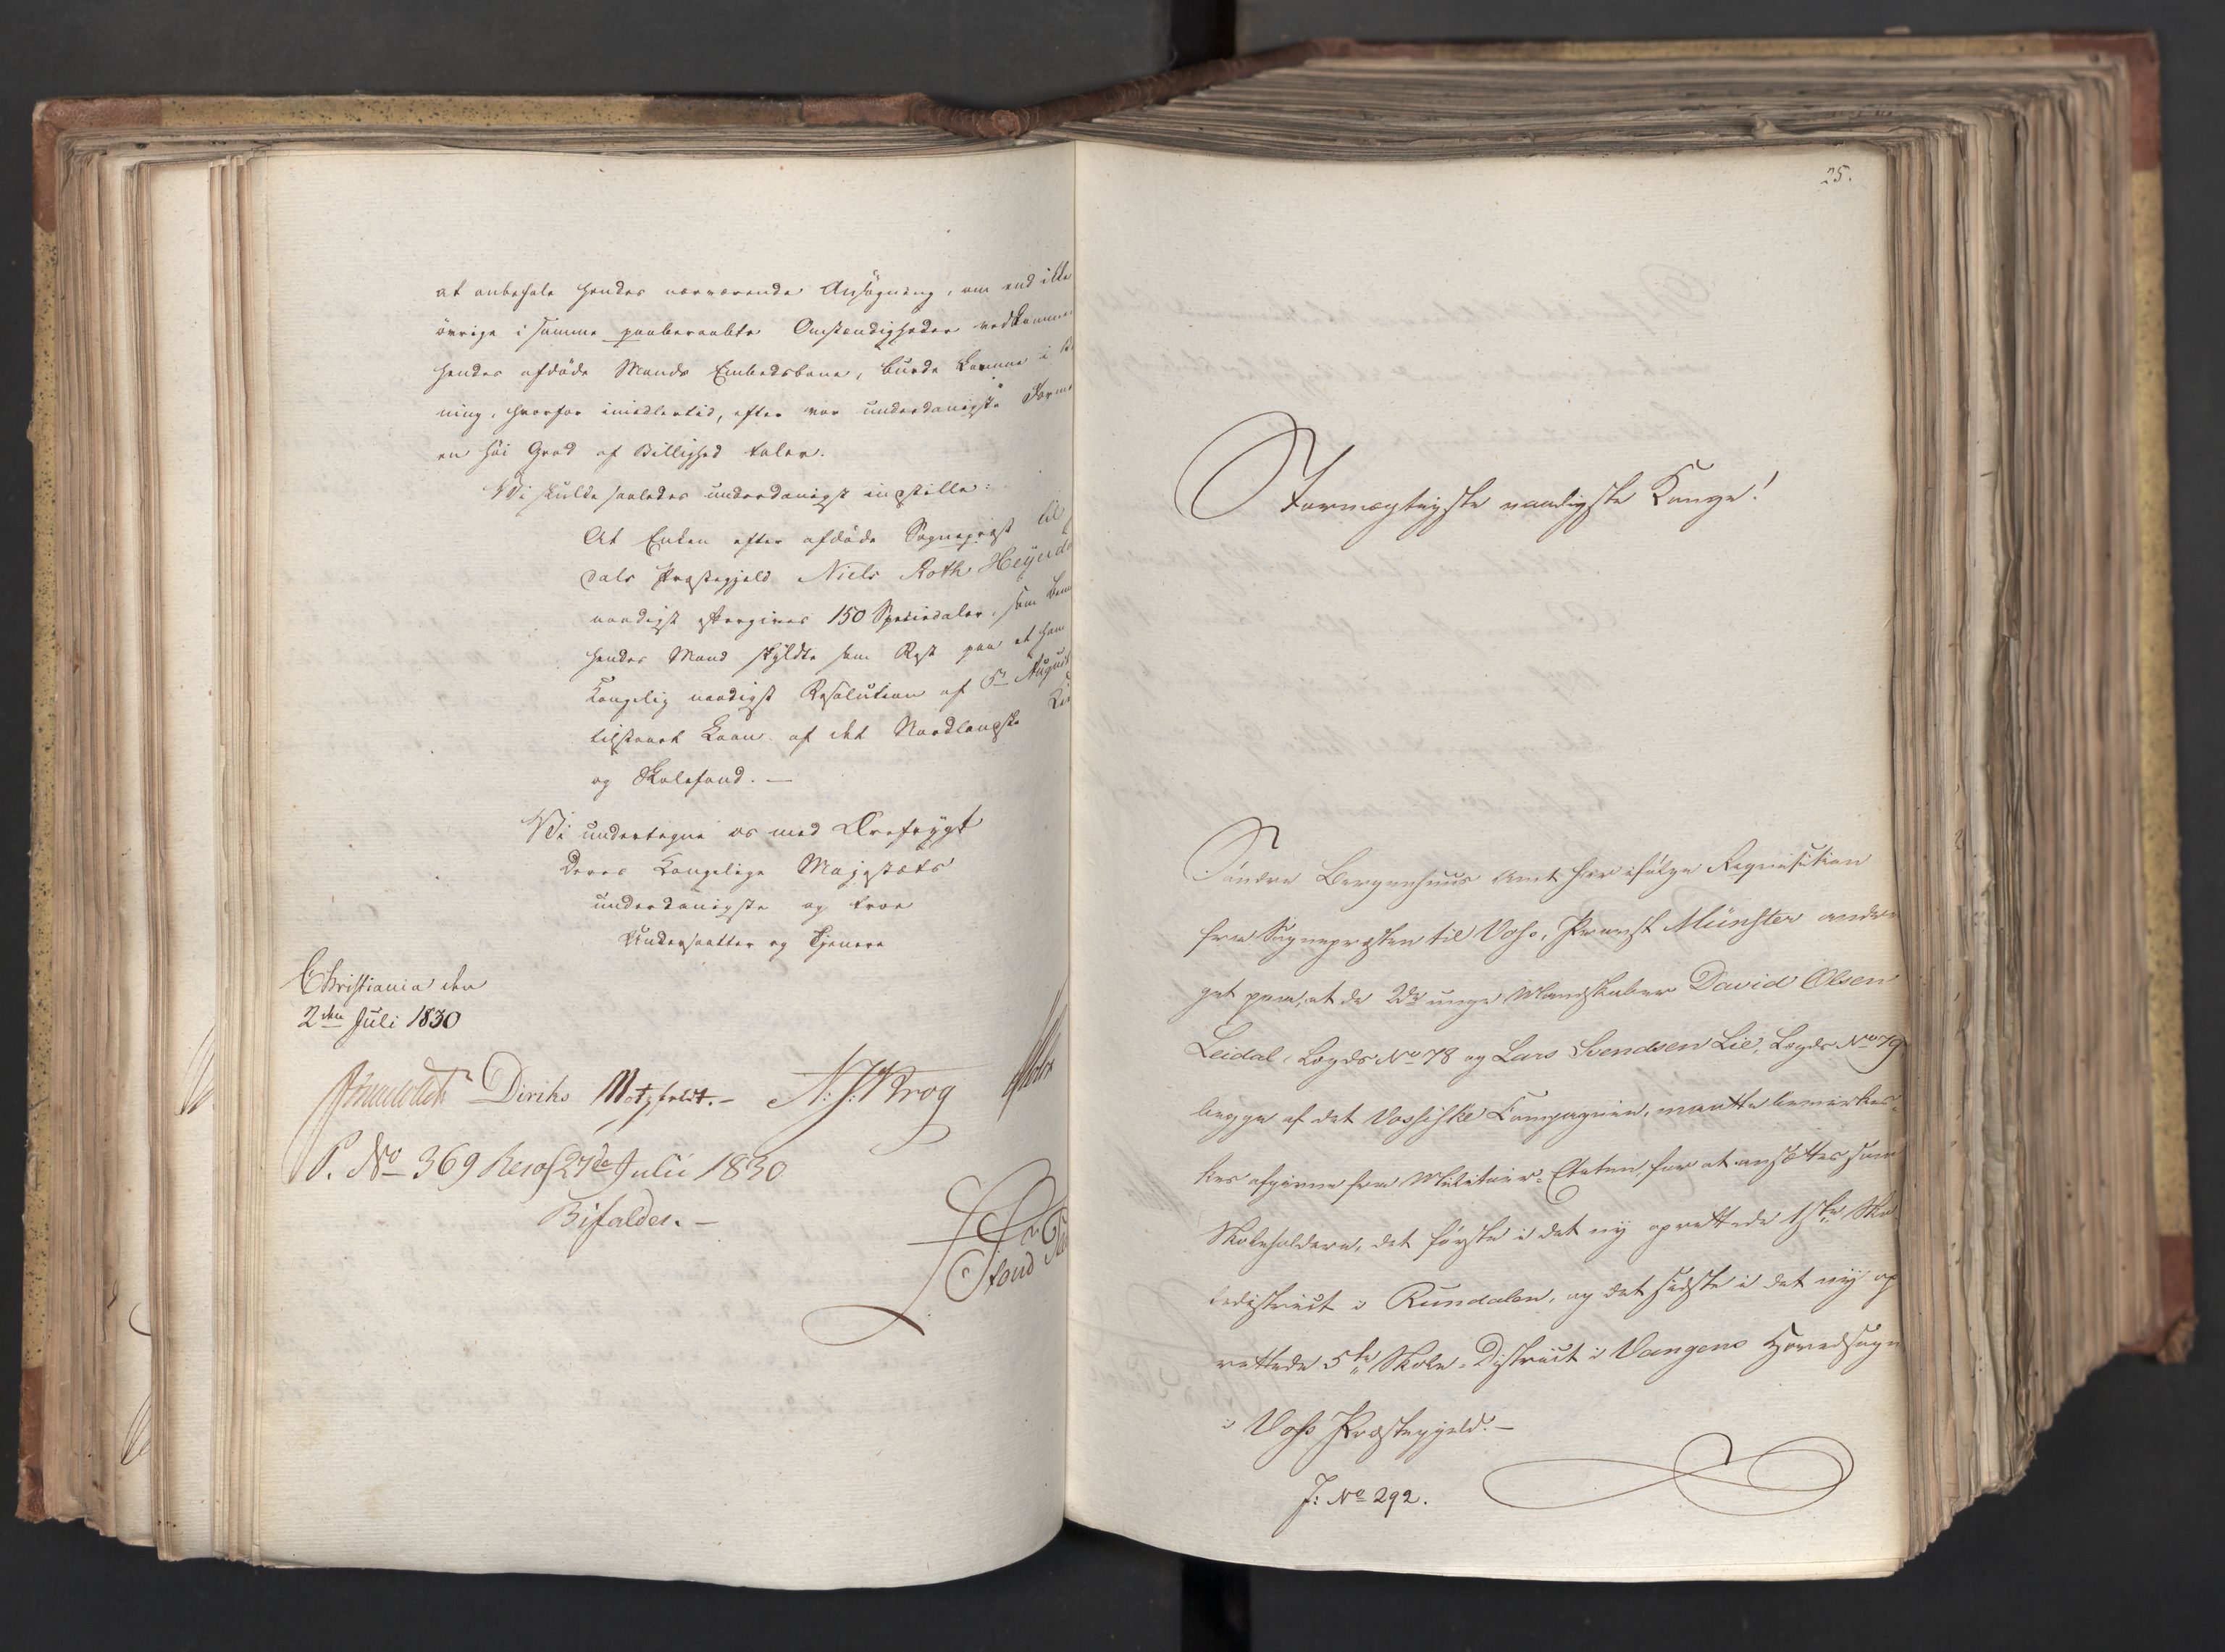 at anbefale hendes nærværende Ansøgning, om end ikke
övrige i samme paaberaabte Omstændigheder vedkomme
hendes afdöde Mands Embedsbane, burde komme i
ning, hvorfor imidlertid, efter vor underdanigste Forme
en höi Grad af Billighed taler.
Vi skulde saaledes underdanigst indstille:
At Enken efter afdöde Sognepræst til
dals Præstegjeld Niels Roth Heyerda
naadigst eftergives 150 Speciedaler, som
hendes Mand skyldte som Rest paa et ham
Kongelig naadigst Resolution af 5te August
tilstaaet Laan af det Nordlandske
og Skolefond. —
Vi undertegne os med Ærefrygt
Deres Kongelige Majestæts
underdanigste og troe
Undersaatter og Tjenere
Christiania den
2den Juli 1830
Diriks Motzfeldt. – N. J. Krog
P. No 369 Resol 27de Julii 1830
Bifaldes. –
25.
Stormægtigste naadigste Konge!
Söndre Bergenhuus Amt har ifölge Requisition
fra Sognepræsten til Voss, Provst Münster andra
get paa, at de 2de unge Mandskaber David Olsen
Leidal, Lægds No 78 og Lars Svendsen Lie, Lægds No 79
begge af det Vossiske Compagnie, maatte bemærkes
kes afgivne fra Militair-Etaten, for at ansættes som
Skoleholdere, det förste i det ny oprettede 1ste Sko
ledistrict i Rundalen, og det sidste i det ny op
rettede 5te Skole-District i Vangens Hovedsogn
i Voss Præstegjeld. –
J: No 292.